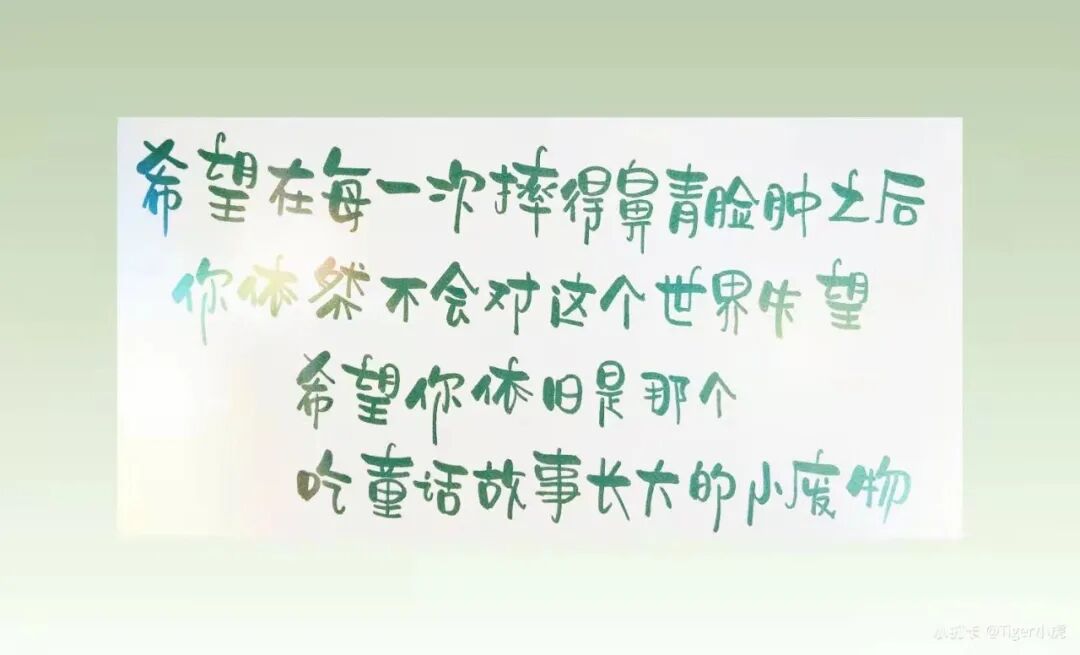 希望在每一次摔得鼻青脸肿之后
你依然不会对这个世界失望
希望你依旧是那个
吃童话故事长大的小废物
@Tiger小虎